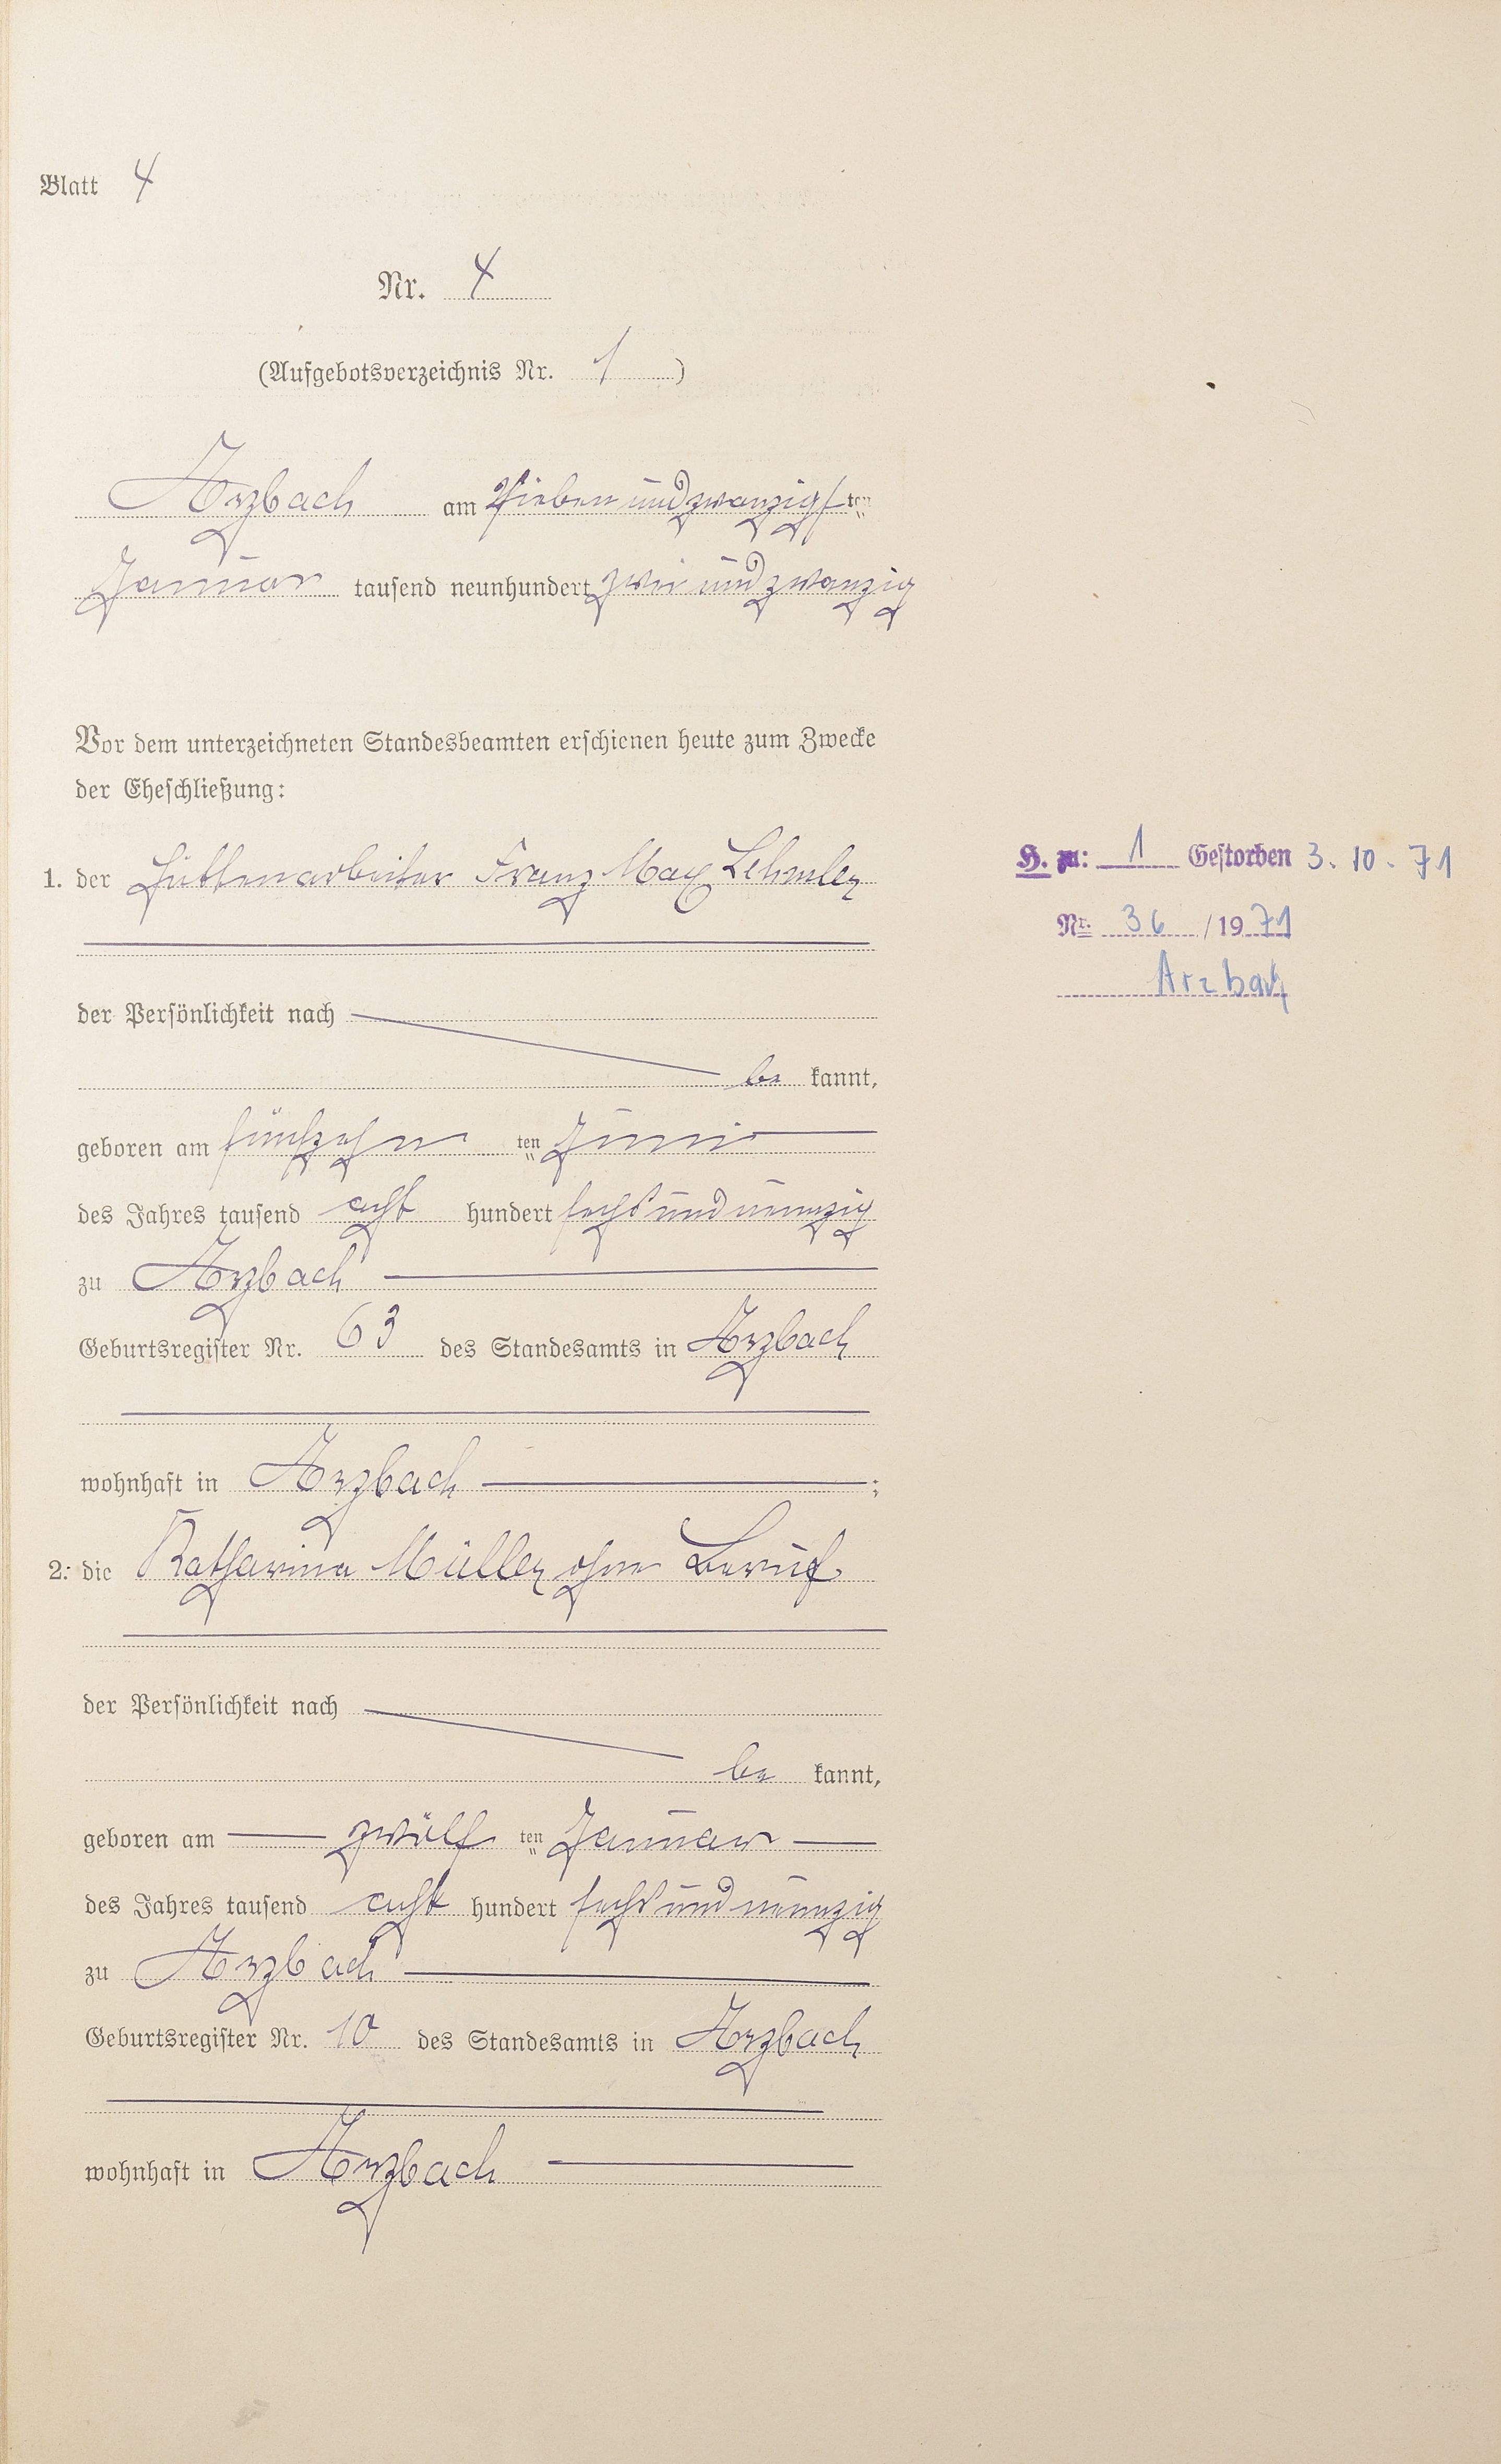 Blatt 4
Nr. 4
(Aufgebotsverzeichnis Nr. 1)
Arzbach am siebenundzwanzigsten
Januar tausend neunhundert zwei und zwanzig
Vor dem unterzeichneten Standesbeamten erschienen heute zum Zwecke
der Eheschließung:
1. der Hüttenarbeiter Franz Max Lehmler
H. zu: 1 Gestorben 3. 10. 71
Nr. 36 / 1971
Arzbach
der Persönlichkeit nach
be kannt,
geboren am fünfzehn ten Juni
des Jahres tausend acht hundert sechs und neunzig
zu Arzbach
Geburtsregister Nr. 63 des Standesamts in Arzbach
wohnhaft in Arzbach ;
2. die Katharina Müller ohne Beruf.
der Persönlichkeit nach
be kannt,
geboren am zwölf ten Januar
des Jahres tausend acht hundert sechs und neunzig
zu Arzbach
Geburtsregister Nr. 10 des Standesamts in Arzbach
wohnhaft in Arzbach